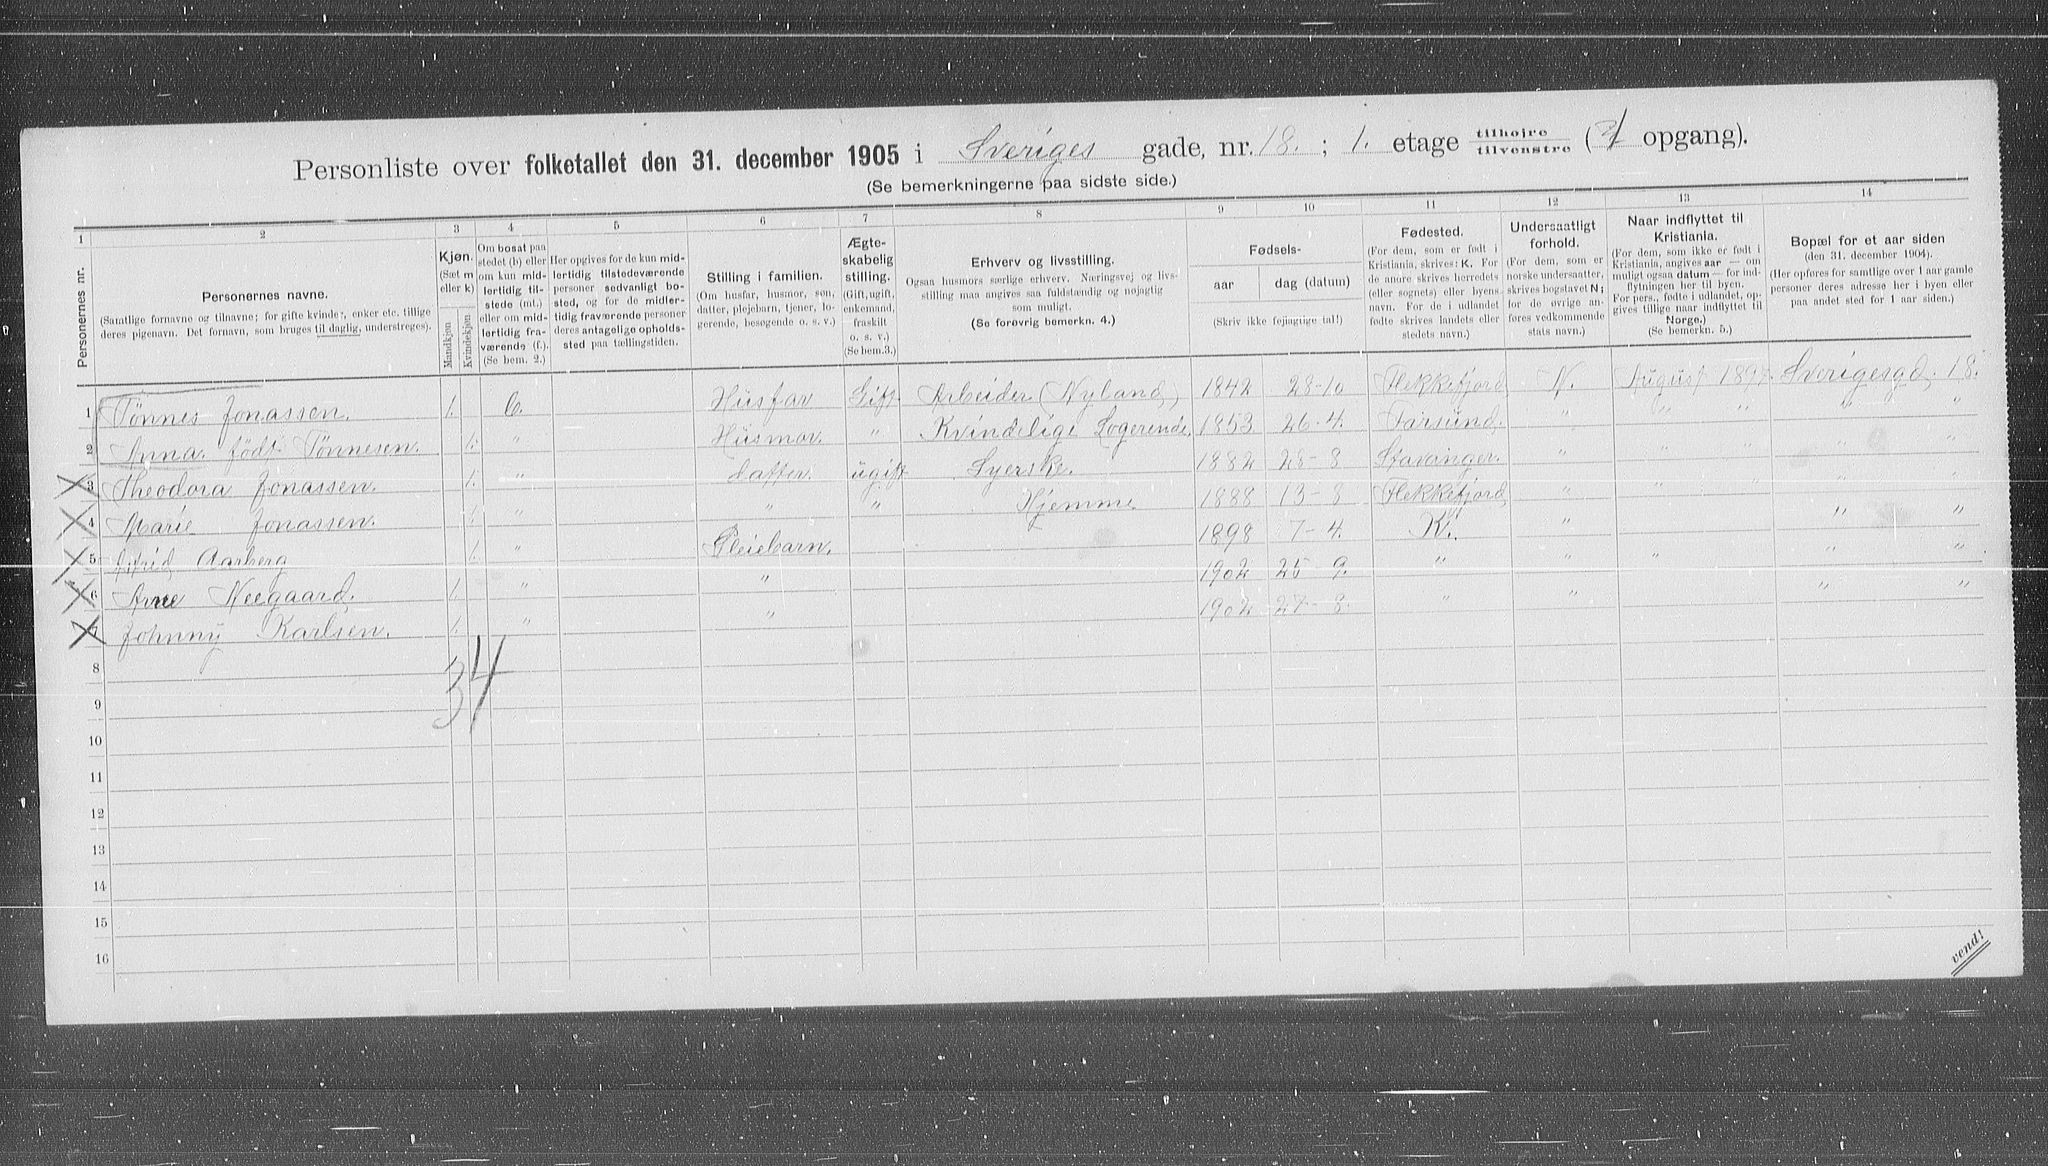 Personliste over folketallet den 31. december 1905 i Sveriges gade, nr. 18. ; 1. etage tilhøjre tilvenstre ( opgang).
(Se bemerkningerne paa sidste side.)
1 2 3 4 5 6 7 8 9 10 11 12 13 14
Personernes nr.
Personernes navne.
(Samtlige fornavne og tilnavne; for gifte kvinder, enker etc. tillige deres pigenavn. Det fornavn, som bruges til daglig, understreges).
Kjøn.
(Sæt m eller k)
Mandkjøn
Kvindekjøn.
Om bosat paa stedet (b) eller om kun midlertidig tilstede (mt.) eller om midlertidig fraværende (f.). (Se bem. 2.)
Her opgives for de kun midlertidig tilstedeværende personer sedvanligt bosted, og for de midlertidig fraværende personer deres antagelige opholdssted paa tællingstiden.
Stilling i familien.
(Om husfar, husmor, søn, datter, plejebarn, tjener, logerende, besøgende o. s. v.)
Ægteskabelig stilling.
(Gift, ugift, enkemand, fraskilt o. s. v.) (Se bem. 3.)
Erhverv og livsstilling.
Ogsaa husmors særlige erhverv. Næringsvej og livsstilling maa angives saa fuldstændig og nøjagtig som muligt.
(Se forøvrig bemerkn. 4.)
Fødsels-
aar
dag (datum)
(Skriv ikke fejlagtige tal!)
Fødested.
(For dem, som er født i Kristiania, skrives: K. For de andre skrives herredets (eller sognets) eller byens navn. For de i udlandet fødte skrives landets eller stedets navn.)
Undersaatligt forhold.
(For dem, som er norske undersaatter, skrives bogstavet N; for de øvrige anføres vedkommende stats navn.)
Naar indflyttet til Kristiania.
(For dem, som ikke er født i Kristiania, angives aar — om muligt ogsaa datum — for indflytningen her til byen. For pers., fødte i udlandet, opgives tillige naar indflyttet til Norge.)
(Se bemerkn. 5.)
Bopæl for et aar siden
(den 31. december 1904).
(Her opføres for samtlige over 1 aar gamle personer deres adresse her i byen eller paa andet sted for 1 aar siden.)
1 Tønnes Jonassen. 1. b. Husfar Gift Arbeider (Nyland) 1842 28-10 Flekkefjord N. August Sverigesgd. 18.
2 Anna født Tønnesen. 1. " Husmor. " Kvindelige Logerende. 1853 26-4. Farsund. " " " " "
3 Theodora Jonassen. 1. " datter. ugift Syerske. 1882 28-8 Stavanger. " " " " "
4 Marie Jonassen. 1. " " " Hjemme. 1888 13-8 Flekkefjord " " " " "
5 Aarberg 1. " Pleiebarn. 1898 7-4. K. " " "
6 Arne Neegaard. 1. " " 1902 25-9. " " " " "
7 Johnny Karlsen. 1. " " 1902 27-8. " " " "
34
8
9
10
11
12
13
14
15
16
vend!